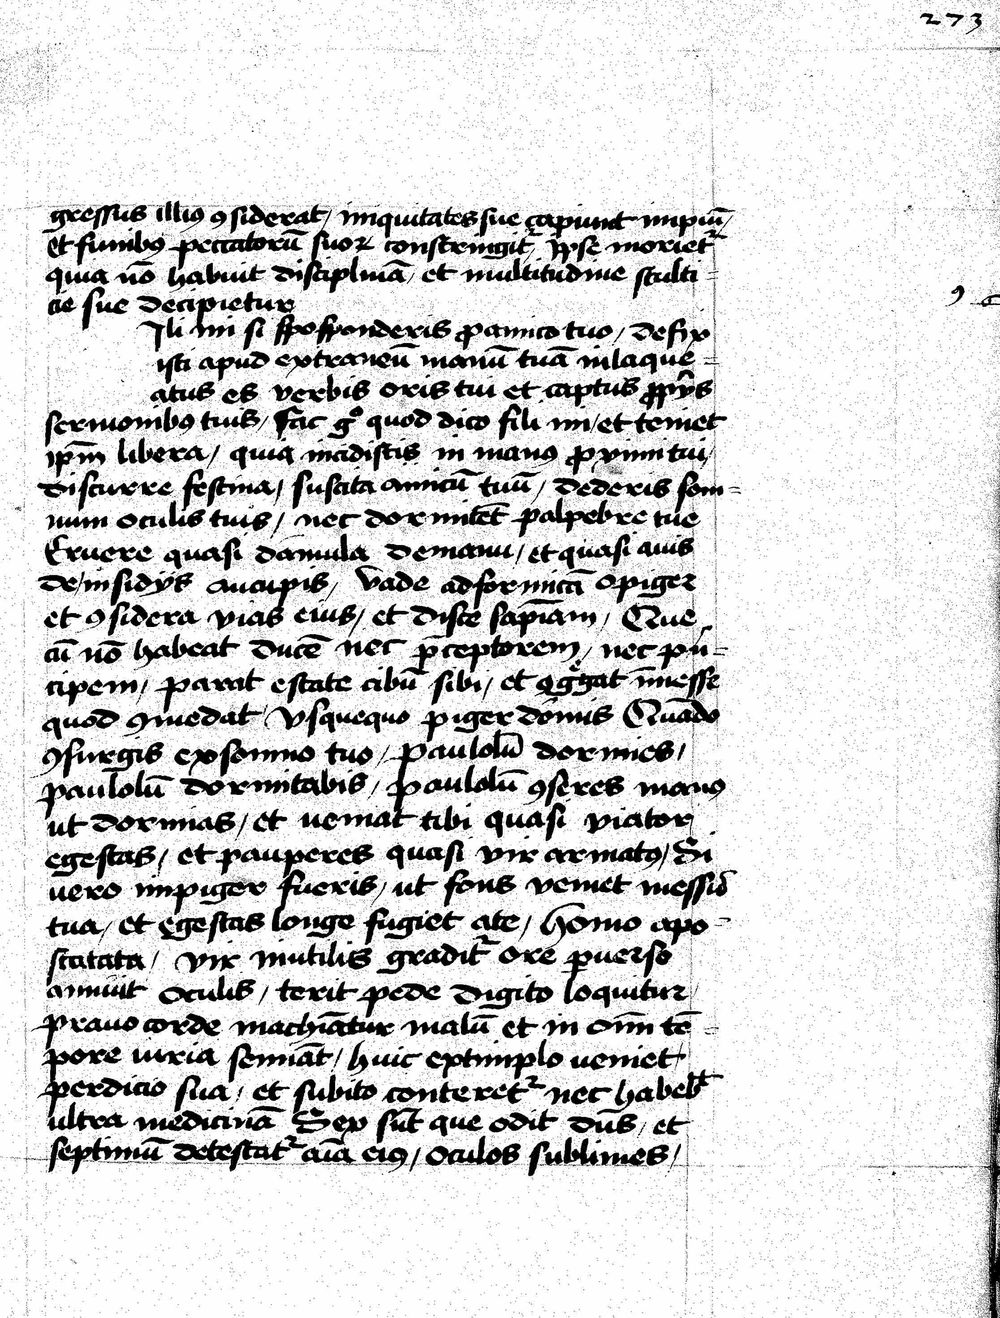 273
gressus illiꝰ ꝯsiderat / iniquitates sue capiunt impiū /
et funibꝰ peccatorū suoꝝ constringit᷑ / ip̄se moriet᷑
quia nō habuit disciplinā / et multitudine stulti-
cie sue decipietur
Ili mi si spoponderis ꝓ amico tuo / defix
isti apud extraneū manū tuā inlaque-
atus es verbis oris tui et captus ꝓprijs
sermonibꝰ tuis / Fac gͦ quod dico fili mi / et temet
ip̄m libera / quia incidistis in manꝰ ꝓximi tui /
discurre festina / suscita amicū tuū / dederis som-
num oculis tuis / nec dormitēt palpebre tue
Eruere quasi damula de manu / et quasi auis
de insidijs aucupis / Vade ad formicā o piger
et ꝯsidera vias eius / et disce sapīam / Que
cū nō habeat ducē nec p̄ceptorem / nec prī-
cipem / parat estate cibū sibi / et ꝯg̊gat in messe
quod ꝯmedat / Vsquequo piger dormis Quādo
ꝯsurgis ex somno tuo / paululū dormies /
paululū dormitabis / paululū ꝯseres manꝰ
ut dormias / et ueniat tibi quasi viator
egestas / et pauperes quasi vir armatꝰ / Si
uero impiger fueris / ut fons veniet messis
tua / et egestas longe fugiet a te / Homo apo-
statata / vir inutilis gradit᷑ ore ꝑuerso
annuit oculis / terit pede digito loquitur /
prauo corde machīatur malū et in om̄i tē-
pore iuria semīat / huic extimplo ueniet
perdicio sua / et subito conteret᷑ nec habeb̄t
ultra medicinā Sex sūt que odit dūs / et
septimū detestat᷑ aīa eiꝰ / oculos sublimes /